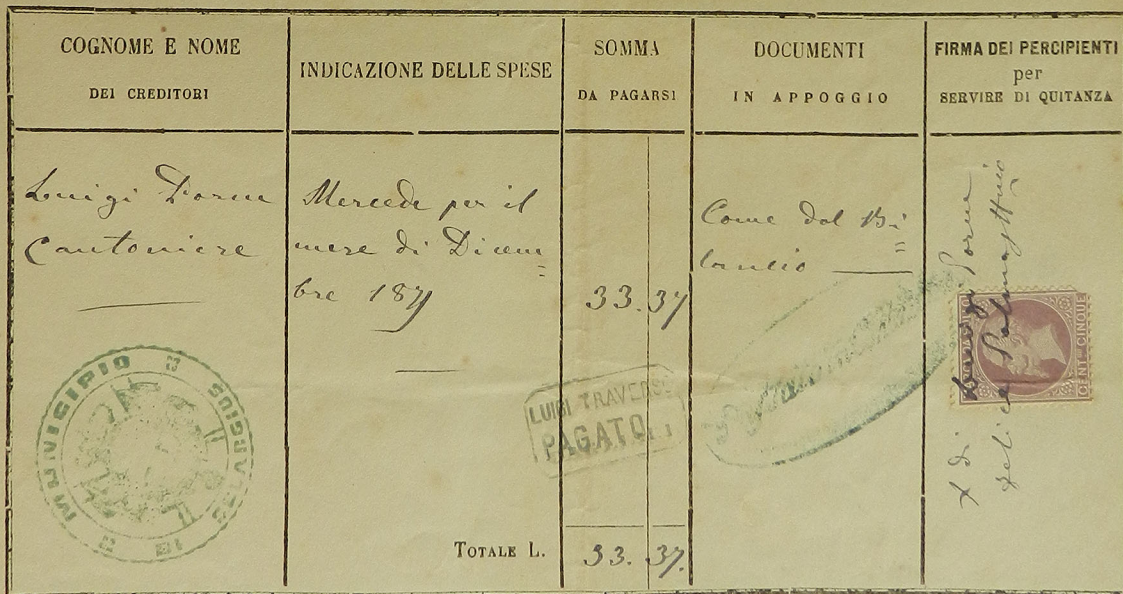 COGNOME E NOME
DEI CREDITORI
INDICAZIONE DELLE SPESE
SOMMA
DA PAGARSI
DOCUMENTI
IN APPOGGIO
FIRMA DEI PERCIPIENTI
per
SERVIRE DI QUITANZA
Luigi
Cantoniere
Mercede per il
mese di Dicem=
bre 1871
33.37
Come dal Bi=
lancio
+ di Luigi
Felice
CENT. CINQUE
MUNICIPIO DI SELARGIUS
LUIGI TRAVERSO
PAGATO
TOTALE L.
33.37.